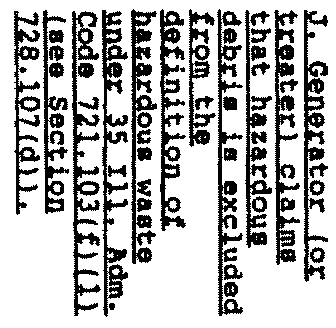 J. Generator (or
treater) claims
that hazardous
debris is excluded
from the
definition of
hazardous waste
under 35 Ill. Adm.
Code 721.103(f)(1)
(see Section
728.107(d)).